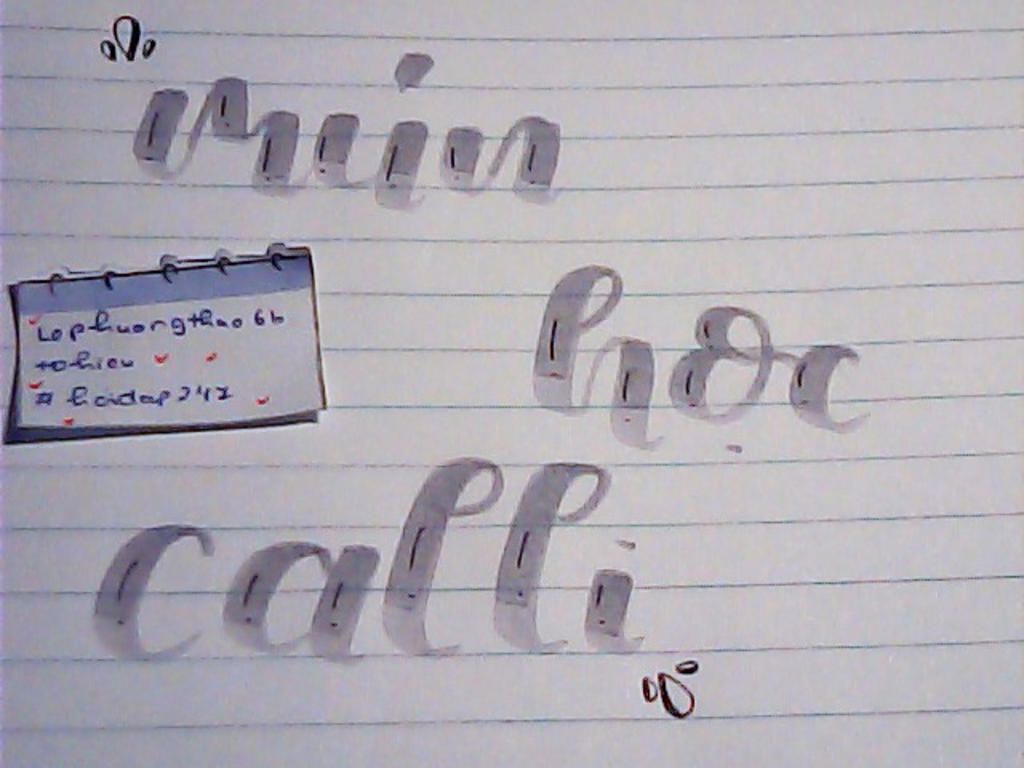 min
học
calli
lephuongthao6b
tohieu
# hoidap247